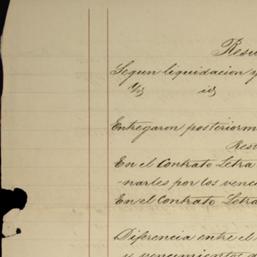 Resu
Segun liquidacion y
Id id
Entregaron posteriorm
Resu
En el Contrato Letra
narles por los venci
En el Contrato Letra
Diferencia entre el
y vencimientos d